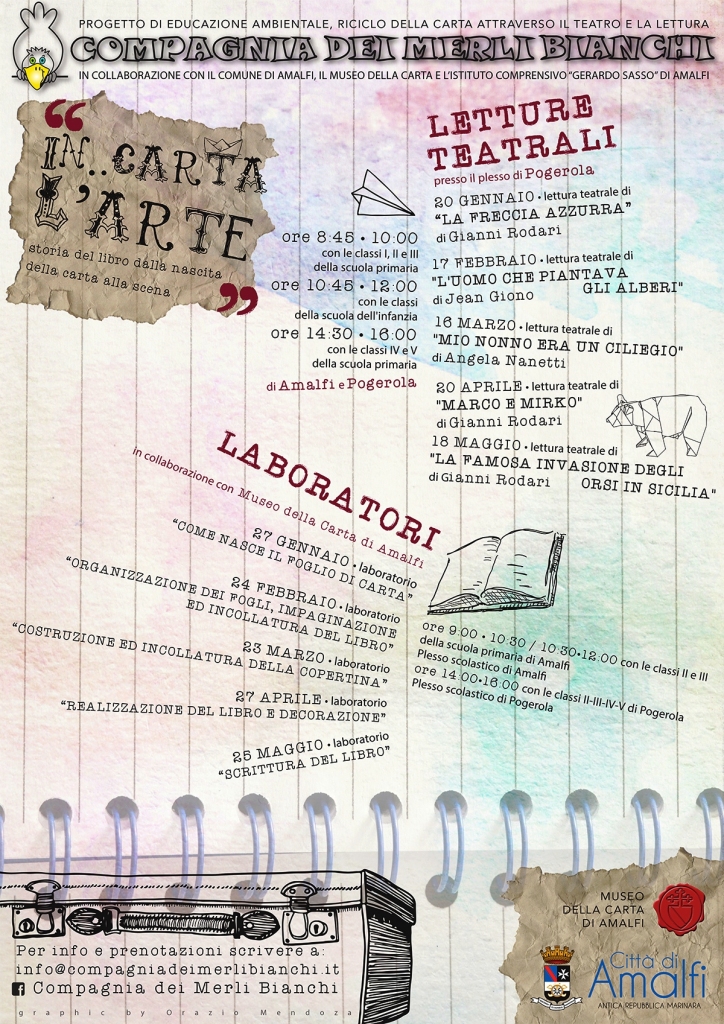 PROGETTO DI EDUCAZIONE AMBIENTALE, RICICLO DELLA CARTA ATTRAVERSO IL TEATRO E LA LETTURA
COMPAGNIA DEI MERLI BIANCHI
IN COLLABORAZIONE CON IL COMUNE DI AMALFI, IL MUSEO DELLA CARTA E L'ISTITUTO COMPRENSIVO "GERARDO SASSO" DI AMALFI
“
IN..CARTA
L'ARTE
storia del libro dalla nascita
della carta alla scena
”
ore 8:45 • 10:00
con le classi I, II e III
della scuola primaria
ore 10:45 • 12:00
con le classi
della scuola dell'infanzia
ore 14:30 • 16:00
con le classi IV e V
della scuola primaria
di Amalfi e Pogerola
LETTURE
TEATRALI
presso il plesso di Pogerola
20 GENNAIO • lettura teatrale di
"LA FRECCIA AZZURRA"
di Gianni Rodari
17 FEBBRAIO • lettura teatrale di
"L'UOMO CHE PIANTAVA
GLI ALBERI"
di Jean Giono
16 MARZO • lettura teatrale di
"MIO NONNO ERA UN CILIEGIO"
di Angela Nanetti
20 APRILE • lettura teatrale di
"MARCO E MIRKO"
di Gianni Rodari
18 MAGGIO • lettura teatrale di
"LA FAMOSA INVASIONE DEGLI
ORSI IN SICILIA"
di Gianni Rodari
LABORATORI
in collaborazione con Museo della Carta di Amalfi
27 GENNAIO • laboratorio
"COME NASCE IL FOGLIO DI CARTA"
24 FEBBRAIO • laboratorio
"ORGANIZZAZIONE DEI FOGLI, IMPAGINAZIONE
ED INCOLLATURA DEL LIBRO"
23 MARZO • laboratorio
"COSTRUZIONE ED INCOLLATURA DELLA COPERTINA"
27 APRILE • laboratorio
"REALIZZAZIONE DEL LIBRO E DECORAZIONE"
25 MAGGIO • laboratorio
"SCRITTURA DEL LIBRO"
ore 9:00 • 10:30 / 10:30•12:00 con le classi II e III
della scuola primaria di Amalfi
Plesso scolastico di Amalfi
ore 14:00•16:00 con le classi II-III-IV-V di Pogerola
Plesso scolastico di Pogerola
Per info e prenotazioni scrivere a:
info@compagniadeimerlibianchi.it
f Compagnia dei Merli Bianchi
graphic by Orazio Mendoza
MUSEO
DELLA CARTA
DI AMALFI
Città di
Amalfi
ANTICA REPUBBLICA MARINARA